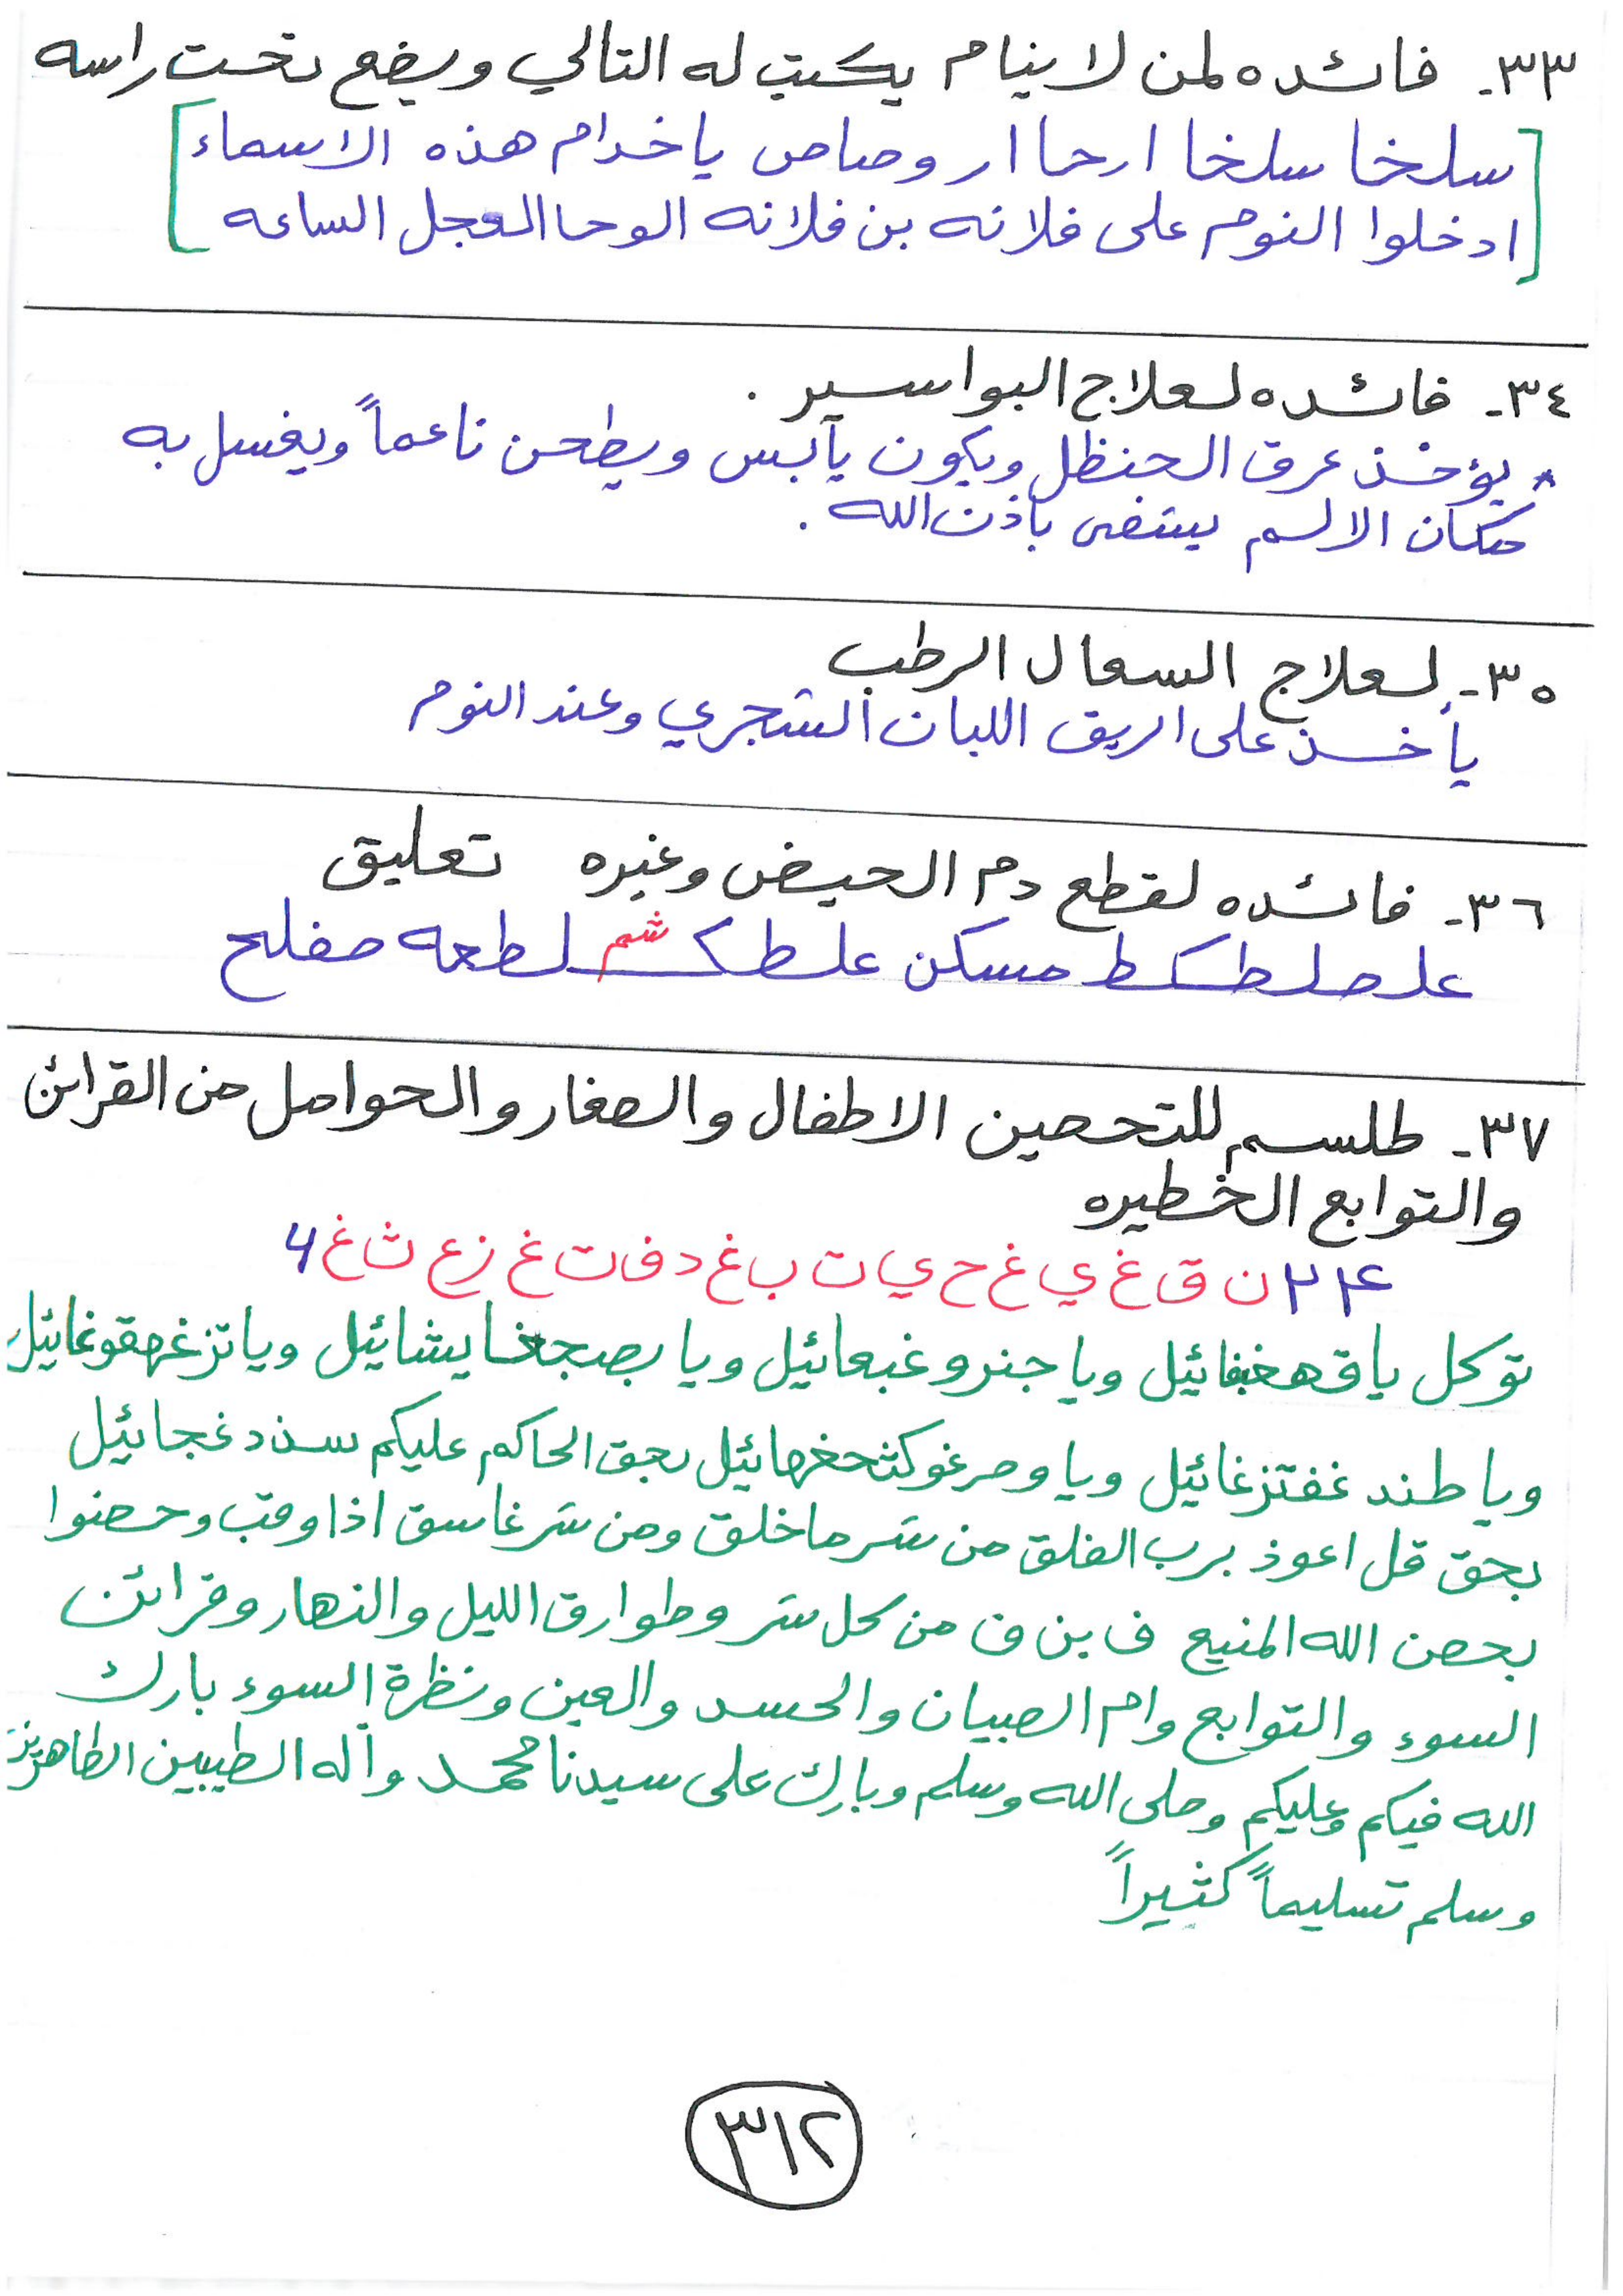 ٣٣- فائده لمن لا ينام يكتب له التالي ويضع تحت راسه
[سلخا سلخا ارحا ار وصاص ياخدام هذه الاسماء
ادخلوا النوم على فلانه بن فلانه الوحا العجل الساعه]
٣٤- فائده لعلاج البواسير .
* يؤخذ عرق الحنظل ويكون يآبس ويطحن ناعماً ويغسل به
مكان الالم يشفى بأذن الله .
٣٥- لعلاج السعال الرطب
يأخذ على الريق اللبان الشجري وعند النوم
٣٦- فائده لقطع دم الحيض وغيره تعليق
علصلطكط مسكن علطكشم لطعه صفلح
٣٧- طلسم للتحصين الاطفال والصغار والحوامل من القرائن
والتوابع الخطيره
ن ق غ ي غ ح ي ت ب غ د ف ت غ ز ع ث غ
توكل ياقهغبفائيل ويا جنروغبعائيل ويا بصجغايشائيل وياتزغهقوغائيل
ويا طندغفتزغائيل ويا وصرغوكثحغهائيل بحق الحاكم عليكم سندد غجائيل
بحق قل اعوذ برب الفلق من شر ماخلق ومن شر غاسق اذا وقب وحصنوا
بحصن الله المنيع ف بن ف من كل شر وطوارق الليل والنهار وقرائن
السوء والتوابع وام الصبيان والحسد والعين ونظرة السوء بارك
الله فيكم وعليكم وصلى الله وسلم وبارك على سيدنا محمد وآله الطيبين الطاهرين
وسلم تسليماً كثيراً
٣١٢